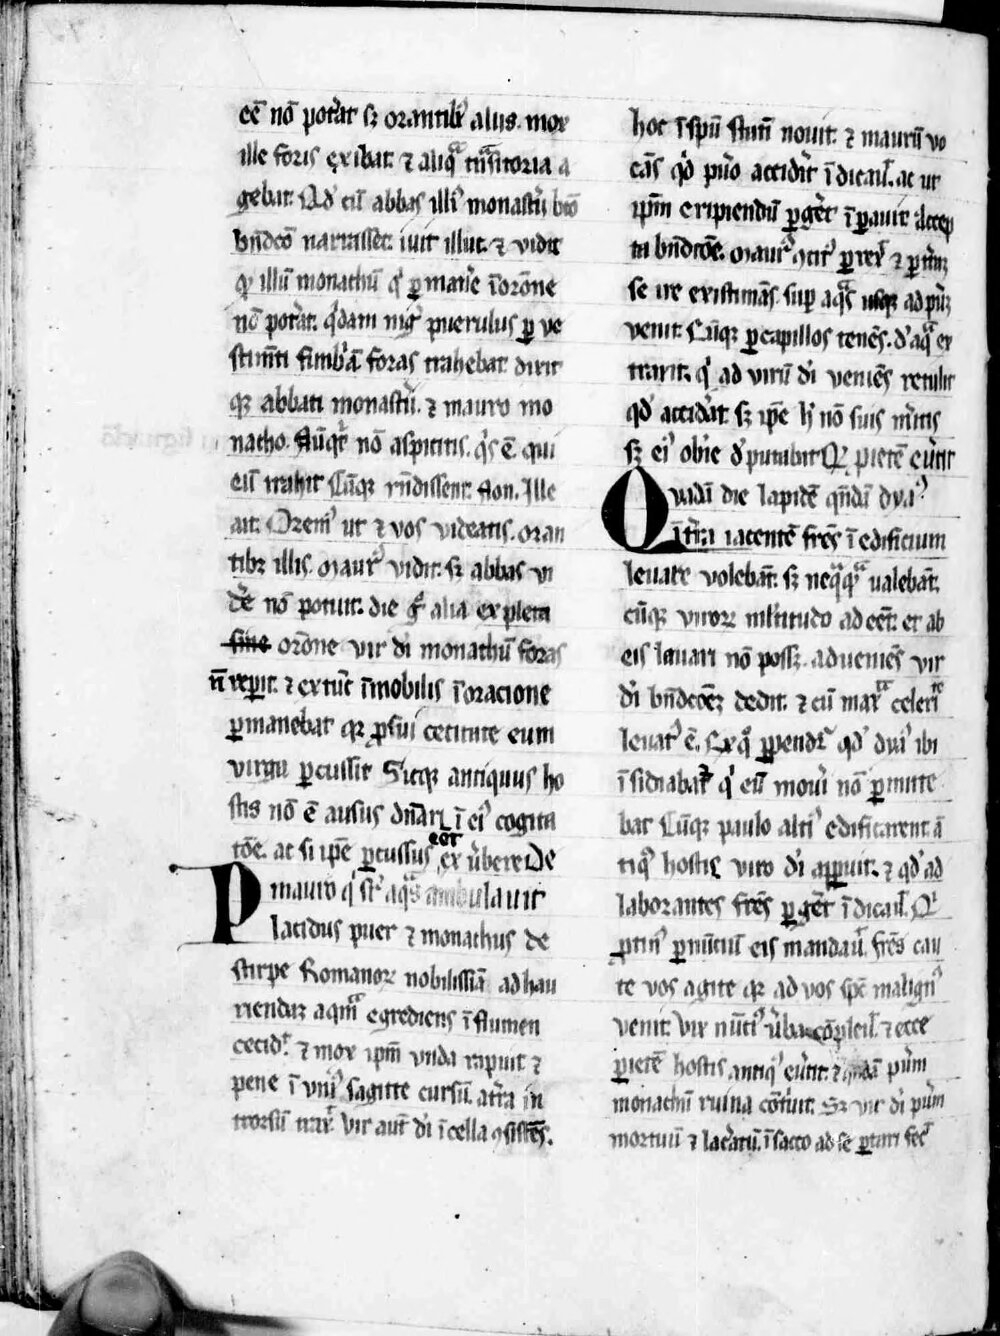 eē nō pot̾at sꝫ orantibꝰ aliis. mox
ille foris exibat. ⁊ aliqͣ tͣnsitoria a
gebat. Qd̾ cū abbas illiꝰ monast̾ii btō
bn̄dcō narrasset. iuit illuc. ⁊ vidit
qꝫ illū monachū qͥ ꝑmane̾ ī orōne
nō pot̾at. qͥdam nig̾ puerulus ꝑ ve
stimēti fimb̾ā foras trahebat. dixit
qꝫ abbati monast̾ii. ⁊ mauro mo
nacho. Nūqͥd nō aspicitis. qͥs ē qui
eū trahit Cūqꝫ rn̄dissent. Non. Ille
ait. Oremꝰ ut ⁊ vos videatis. oran
tibꝫ illis. Maurꝰ vidit. sꝫ abbas vi
de̾ nō potuit. die gͦ alia expleta
sine orōne vir di̾ monachū foras
īnvenit. ⁊ extūc īmobilis ī oracione
ꝑmanebat qꝫ ꝓ sui cecitate eum
virga ꝑcussit Sicqꝫ antiquus ho
stis nō ē ausus dn̄ari ī eiꝰ cogita
tōe. ac si ip̄e ꝑcussus eēt ex v̾bere De
mauro qͥ sr̾ aqͣs ambulauit
Placidus puer ⁊ monachus de
stirpe Romanoꝝ nobilissiā ad hau
riendaꝫ aqͣm egrediens ī flumen
cecidᵗ. ⁊ mox ip̄m vnda rapuit ⁊
pene ī vniꝰ sagitte cursū. at̾ra in
trorsū trax̾. Vir aut̄ di̾ ī cella ꝯsistēs.
hoc ī sp̄u statī nouit. ⁊ maurū vo
cās qd̾ pu̾o accidit̾ īdicauͭ. ac ut
ip̄m eripiendū ꝑge̾t ī ꝑauit Accep
ta bn̄dcōe. Maurꝰ ꝯcitꝰ ꝑrex̾ ⁊ ꝑ t̾raꝫ
se ire existimās. suꝑ aqͣs usqꝫ ad pu̾ꝫ
venit. Cūqꝫ ꝑ capillos tenēs. d̾ aqͣ ex
traxit. qͥ ad virū di̾ veniēs retulit
qd̾ accid̾at. sꝫ ip̄e hͦ nō suis m̾itis
sꝫ eiꝰ obīe d̾putabit Qꝫ pietē eu̾tit
Quādā die lapidē qn̄dā
ī t̾ra iacentē frēs ī edificium
leuare volebāt. sꝫ neqͣqͣ ualebāt.
cūqꝫ viroꝝ ml̾titudo adeēt. et ab
eis leuari nō possꝫ. adueniēs vir
di̾ bn̄dcōeꝫ dedit. ⁊ cū maxͣ celeriͭͤ
leuatꝰ ē. Ex qͦ ꝑpenditᵣ qd̾ ibi
īsidiabat̾ qͥ eū moui̾ nō ꝑmitte
bat Cūqꝫ paulo altiꝰ edificarent ā
tiqꝰ hostis viro di̾ apparuit. ⁊ qd̾ ad
laborantes frēs ꝑge̾t īdicauͭ. Qͥ
ꝓtinꝰ ꝑ nūtiū eis mandauͭ. frēs cau
te vos agite qꝫ ad vos spc̄ malignꝰ
venit. Vix nūtiꝰ v̾ba cōpleuͭ. ⁊ ecce
pietē hostis antiqꝰ eu̾tit. ⁊ pu̾m
monachū ruina cōt̾uit. Sꝫ vir di̾ pu̾m
mortuū ⁊ lac̾atū. ī sacco ad se ꝑtari fecͭ